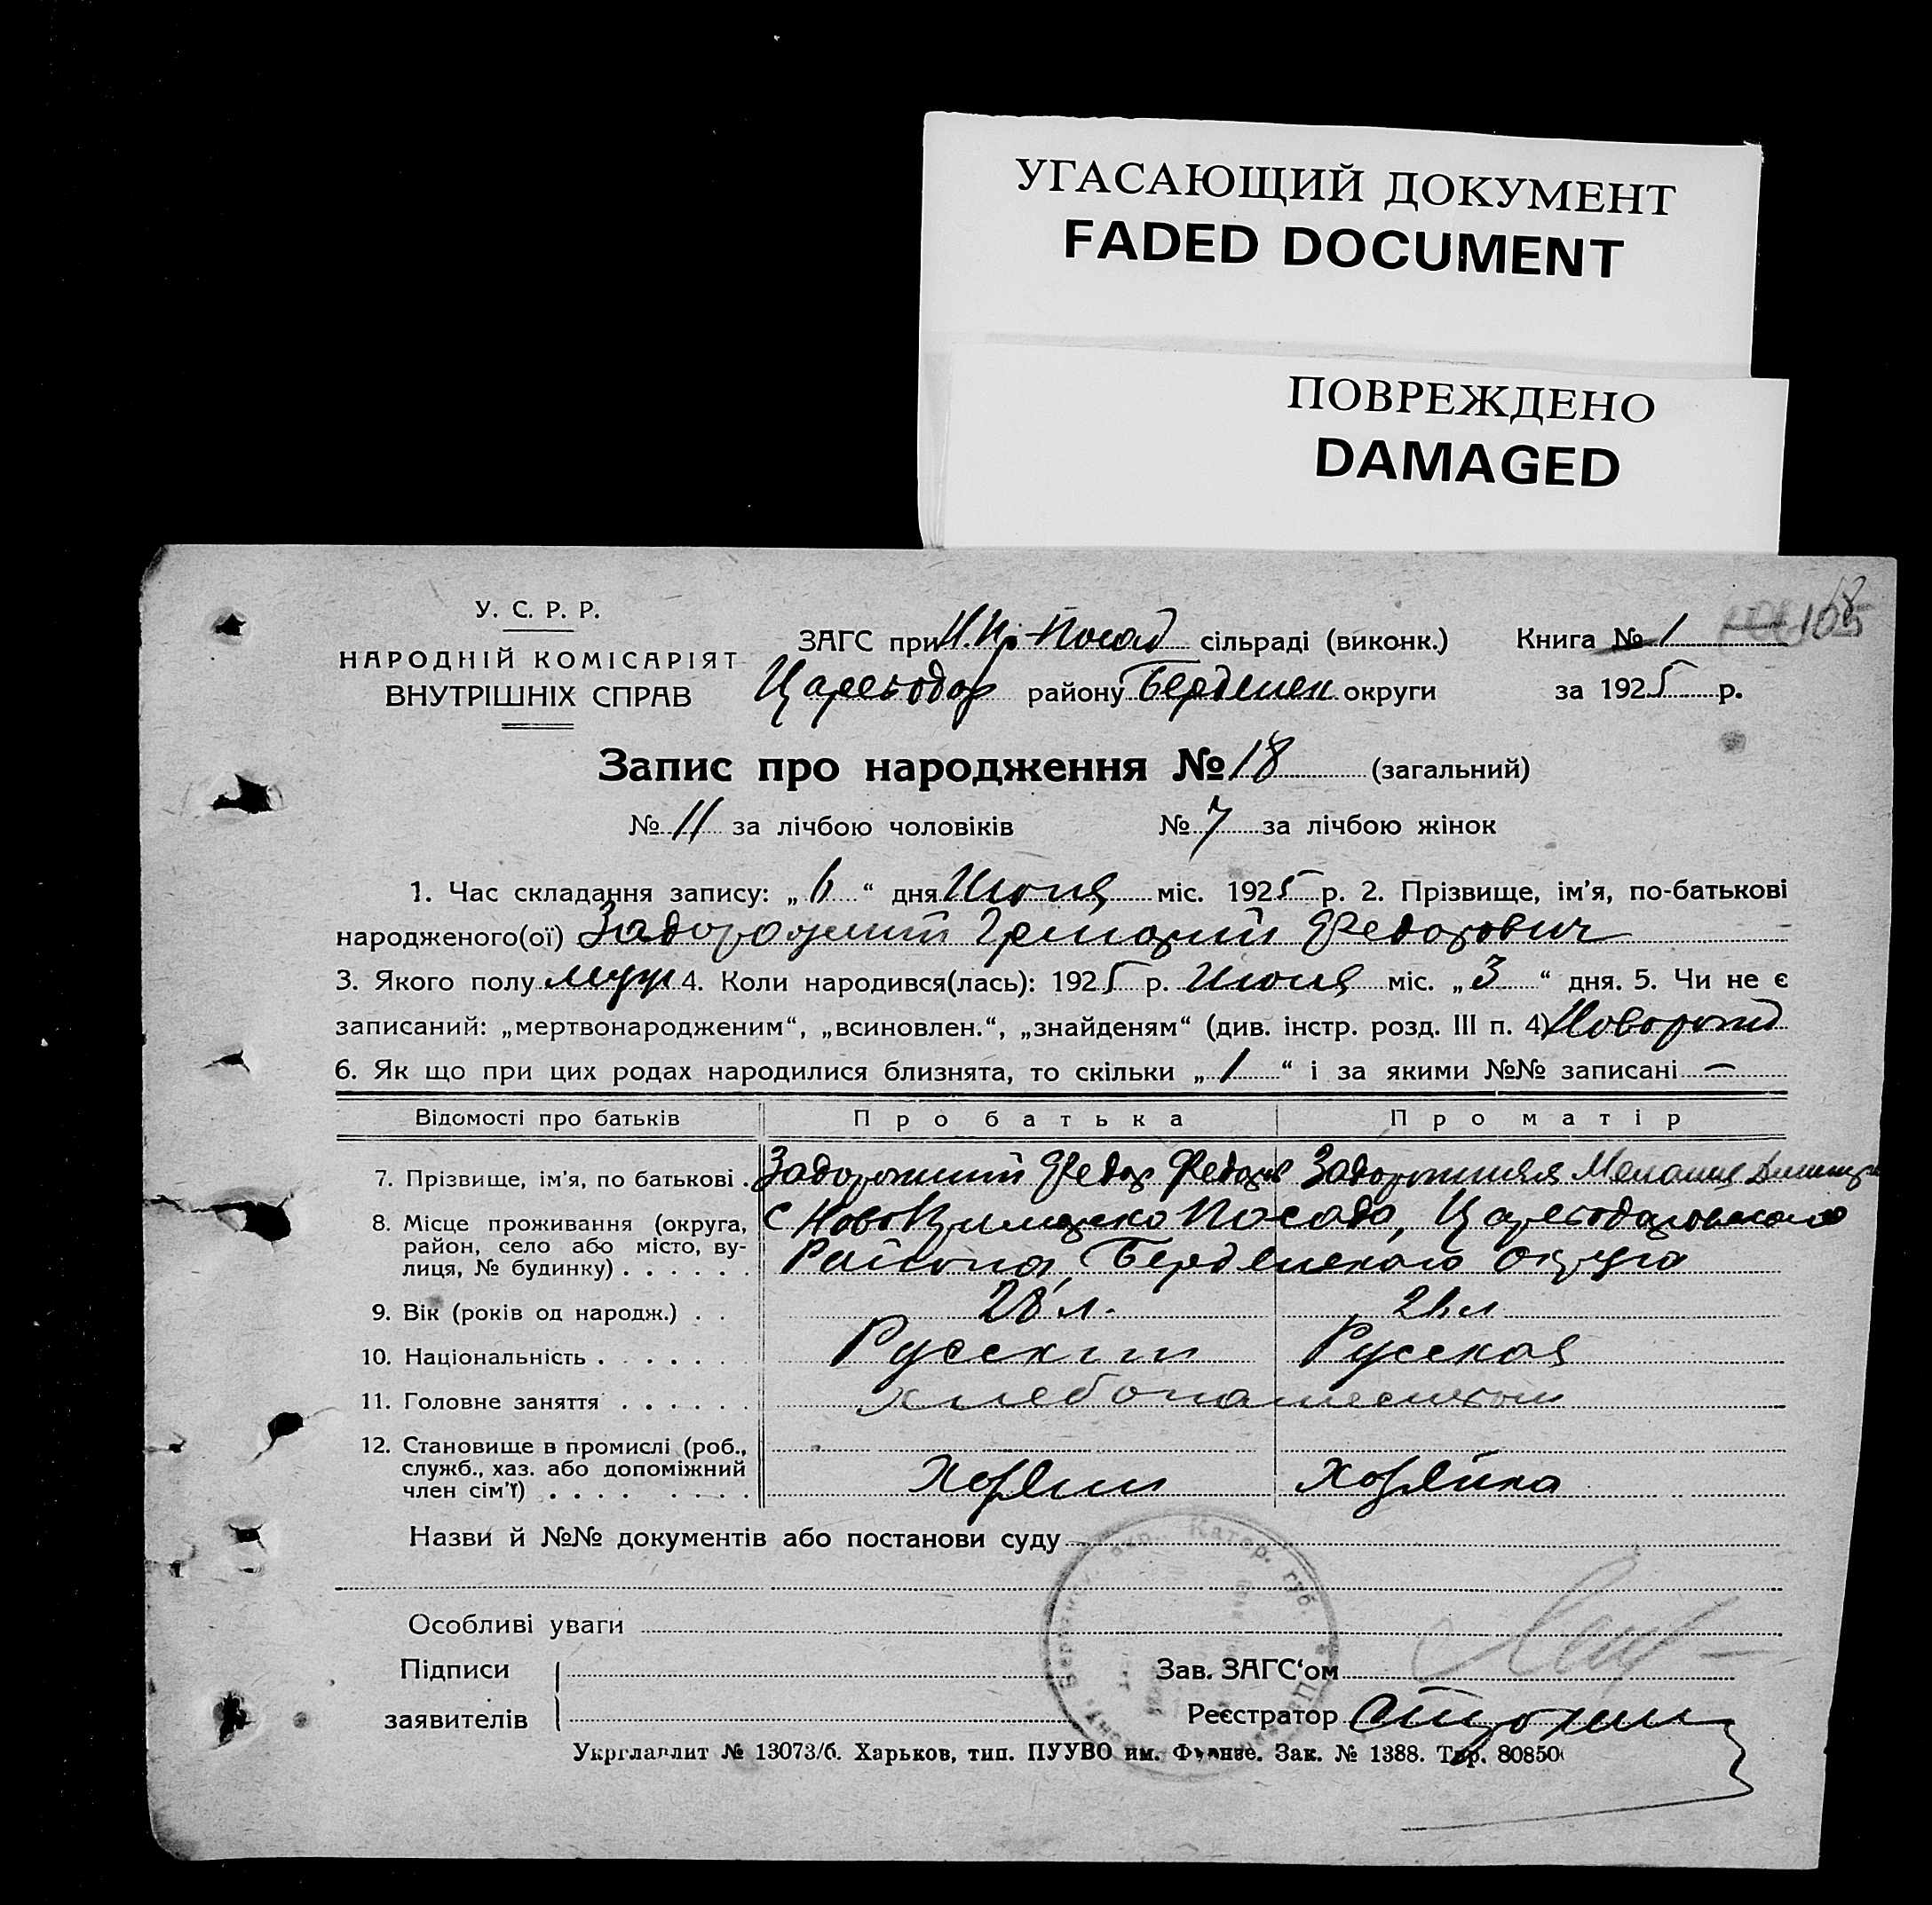 УГАСАЮЩИЙ ДОКУМЕНТ
FADED DOCUMENT
ПОВРЕЖДЕНО
DAMAGED
У. С. Р. Р.
НАРОДНІЙ КОМІСАРІЯТ
ВНУТРІШНІХ СПРАВ
ЗАГС при Посад сільраді (виконк.)
Цареводар району Бердянск округи
Книга № 1 105
за 1925 р.
Запис про народження № 18 (загальний)
№ 11 за лічбою чоловіків № 7 за лічбою жінок
1. Час складання запису: „ 6 “ дня Июня міс. 1925 р. 2. Прізвище, ім’я, по-батькові
народженого(ої) Задорожний Григорий Федорович
3. Якого полу муж 4. Коли народився(лась): 1925 р. Июня міс. „ 3 “ дня. 5. Чи не є
записаний: „мертвонародженим“, „всиновлен.“, „знайденям“ (див. інстр. розд. III п. 4)Новорожд
6. Як що при цих родах народилися близнята, то скільки „ 1 “ і за якими №№ записані —
Відомості про батьків Про батька Про матір
7. Прізвище, ім’я, по батькові . Задорожний Федор Федоров Задорожняя Мелания
8. Місце проживання (округа, район, село або місто, вулиця, № будинку) . . . . . . с Посада, Цареводаровского
Района, Бердянского Округа
9. Вік (років од народж.) . . 28 л. 26 л
10. Національність . . . . . . . Русский Русская
11. Головне заняття . . . . . . хлебопашеством
12. Становище в промислі (роб., служб., хаз. або допоміжний член сім’ї) . . . . . . . . Хозяин Хозяйка
Назви й №№ документів або постанови суду
Особливі уваги
Підписи
заявителів
Зав. ЗАГС‘ом
Реєстратор
Укрглавлит № 13073/б. Харьков, тип. ПУУВО им. Фрунзе. Зак. № 1388. Тир. 80850